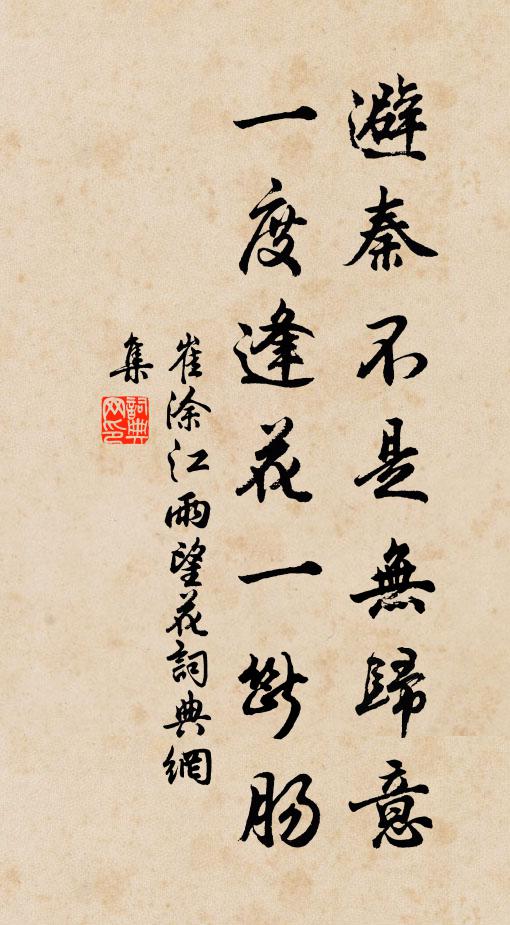 避秦不是無歸意
一度逢花一斷肠
崔涂江雨望花詞典網
集
詞典网印